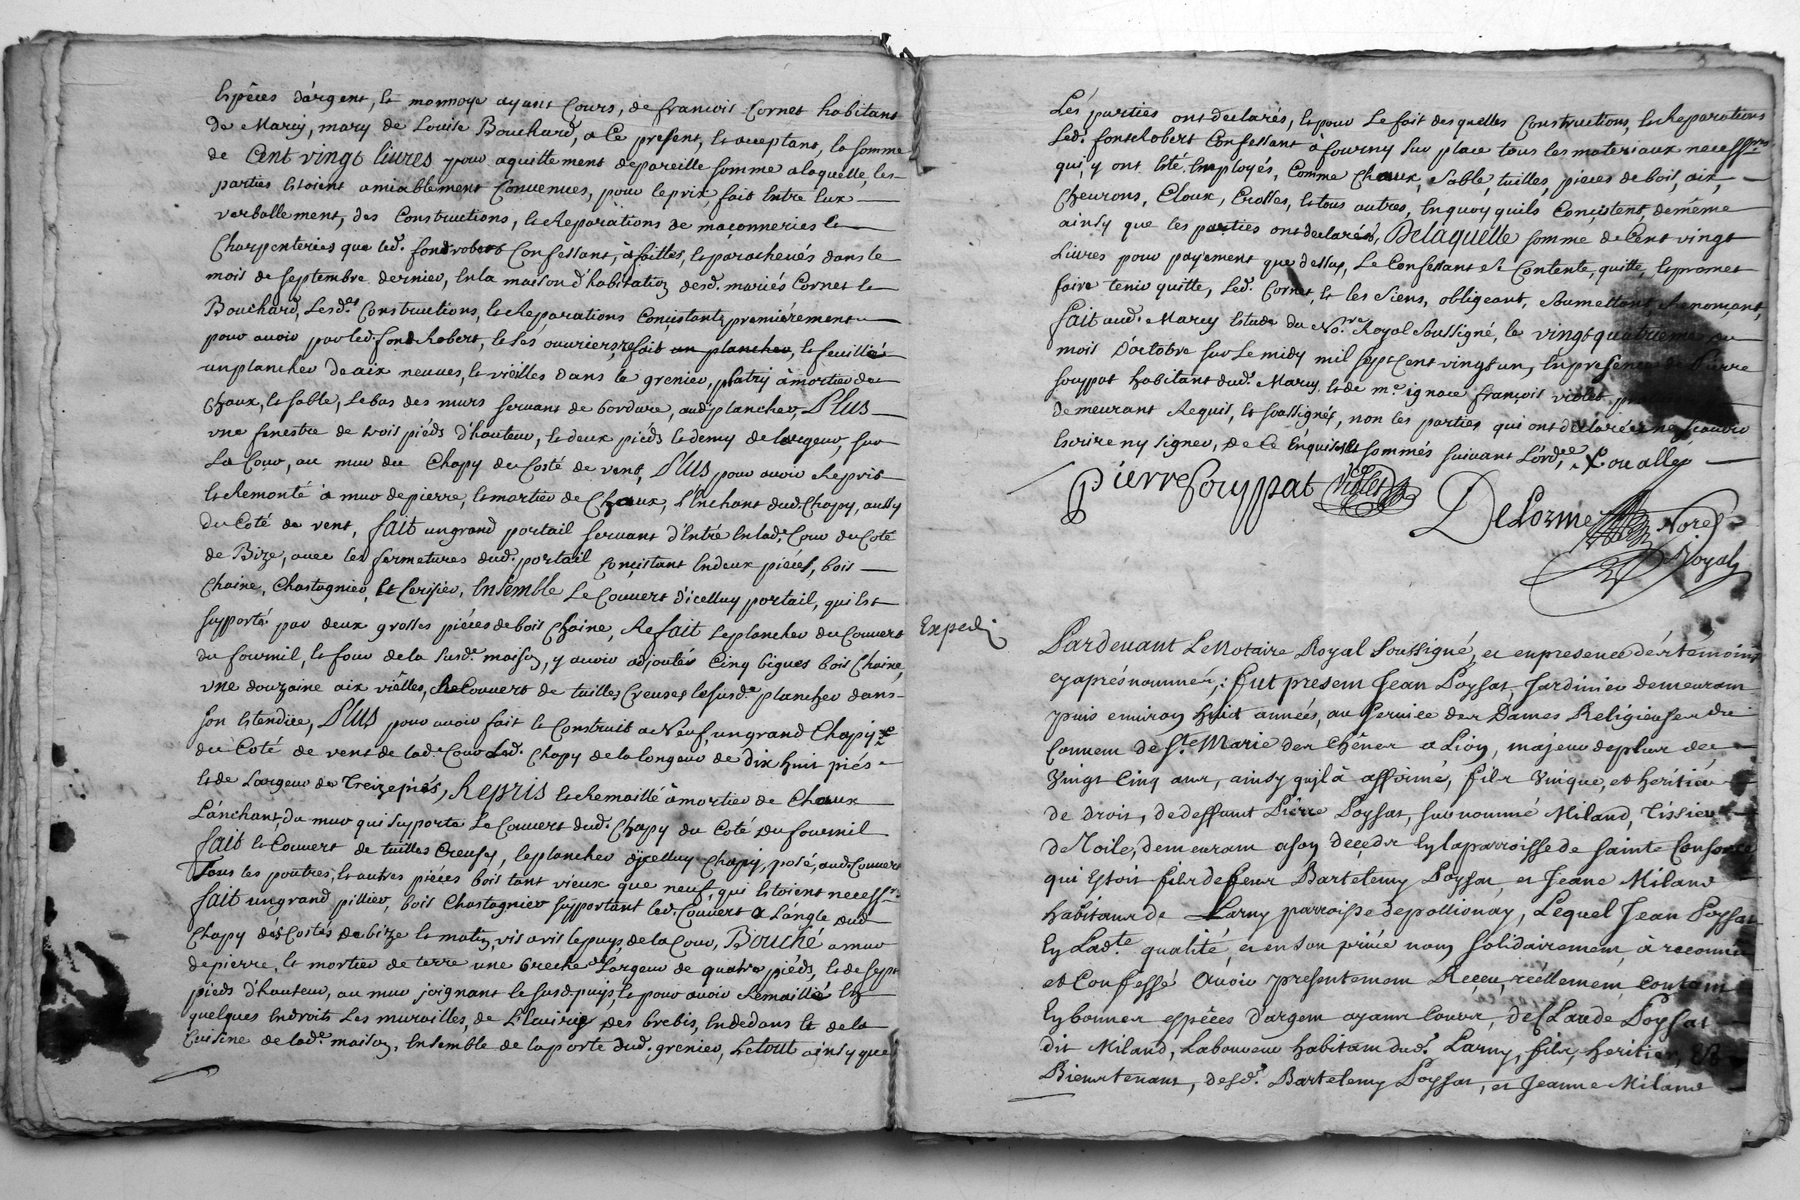 Espêces d'argent, et monnoye ayant Cours, de francois Cornet habitant
de Marcy, mary de Louise Bouchard, a Ce present, et aceptant, la somme
de Cent vingt livres pour aquittement de pareille somme a laquelle, les
parties Estoient amiablement Convenues, pour le prix, fait Entre Eux
verballement, des Constructions, et Reparations de maçonneries et
Charpenteries que led. fondrobert Confessant, à faittes, et parachevés dans le
mois de septembre dernier, En la maison d'habitation desd. mariés Cornet et
Bouchard, Lesd.es Constructions, et Reparations Conçistants premiérement
pour avoir par led. fond Robert, et ses ouvriers, refait un plancher, et feuillié
un plancher de aix neuves, et vieilles dans le grenier, platry à mortier de
Chaux, et sable, Le bas des murs servant de bordure, aud. plancher, Plus
vne fenestre de trois piéds d'hauteur, et deux piéds et demy de largeur, sur
La Cour, au mur du Chapy du Costé de vent, Plus pour avoir Repris
et Remonté à mur de pierre, et mortier de Chaux, L'Enchant dud. Chapy, aussy
du Coté de vent, fait un grand portail servant d'Entré En lad. Cour du Coté
de Bize, avec les fermetures dud. portail Conçistant En deux piéces, bois
Chaine, Chastagnier, Et Cerisier, Ensemble Le Couvert d'icelluy portail, qui Est
supporté par deux grosses piéces de bois Chaine, Refait Le plancher du Couvert
du fournil, et four de la susd.e maison, y avoir adjoutés Cinq bigues bois Chaine,
vne douzaine aix vieilles, Recouvert de tuilles Creuses le susd.e plancher dans
son Estendüe, Plus pour avoir fait et Construit a Neuf, un grand Chapy
du Coté de vent de lad. Cour Led. Chapy de la longeur de dix huit piés
et de Largeur de Treize piés, Repris et Remaillé à mortier de Chaux
L'anchant du mur qui supporte Le Couvert dud. Chapy du Coté du fournil
fait et Couvert de tuilles Creuses, le plancher d'jcelluy Chapy, posé, aud. Couvert
Tous les poutres, et autres pieces bois tant vieux que neuf, qui Estoient necess.res
fait un grand pillier, bois Chastagnier supportant led. Couvert a L'angle dud.
Chapy dés Costés de bize et matin, vis avis le puys de la Cour, Bouché a mur
de pierre, et mortier de terre une breche de Largeur de quatre piéds, et de sept
pieds d'hauteur, au mur joignant le susd. puys, et pour avoir Remaillié En
quelques Endroits Les murailles, de L'Ecuirie des brebis, En dedans et de la
Cuisine de lad.e maison, Ensemble de la porte dud. grenier, Le tout ainsy que
Les parties ont declarés, et pour Le fait des quelles Constructions, et Reparations
Led. fond Robert Confessant à fourny sur place tous les materiaux necess.res
qui, y ont Eté Employés, Comme Chaux, sable, tuilles, pieces de bois, aix,
Chevrons, Cloux, Crosses, et tous autres, En quoy quils Conçistent, de même
ainsy que les parties ont declarés, De laquelle somme de Cent vingt
Livres pour payement que dessus, Le Confessant se Contente, quitte, et promet
faire tenir quitte, Led. Cornet, et les Siens, obligeant, soumettant, Renonçant,
fait aud. Marcy Estude du No.re Royal soussigné, le vingtquatrieme du
mois D'octobre sur Le midy mil sept Cent vingt un, En presence de Pierre
souppat habitant dud. Marcy, et de m.e ignace francois violet
demeurant Requis, et soussignés, non les parties qui ont declarées ne scavoir
Escrire ny signer, de Ce Enquises et sommés suivant L'ord.ce
Pierre Souppat Violet
DeLorme
Nore
Royal
Expedi
Pardevant Le Notaire Royal Soussigné, et en presence dés témoins
cy aprés nommés, : fut present Jean Poyssat Jardinier demeurant
puis environ huit années, au service des Dames Religieuses du
Couvent de S.te Marie des Chênes a Lion, majeur de plus de
Vingt Cinq ans, ainsy quil à affirmé, fils Vnique, et heritier
de droit, de deffunt Piérre Poyssat, surnommé Miland, Tissier
de Toile, demeurant a son deçeds En la parroisse de sainte Consorce
qui Estoit fils de feux Bartelemy Poyssat, et Jeane Miland
habitans de Larny parroisse de pollionay, Lequel Jean Poyssat
En Lad.te qualité, et en son privé nom, solidairement, à reconnu
et Confessé avoir presentement Receu, reellement, contant
En bonnes espêces d'argent ayant cours, de Claude Poyssat
dit Miland, Laboureur habitant dud. Larny, fils, heritier, Et
Bientenant, desd.s Bartelemy Poyssat, et Jeanne Miland